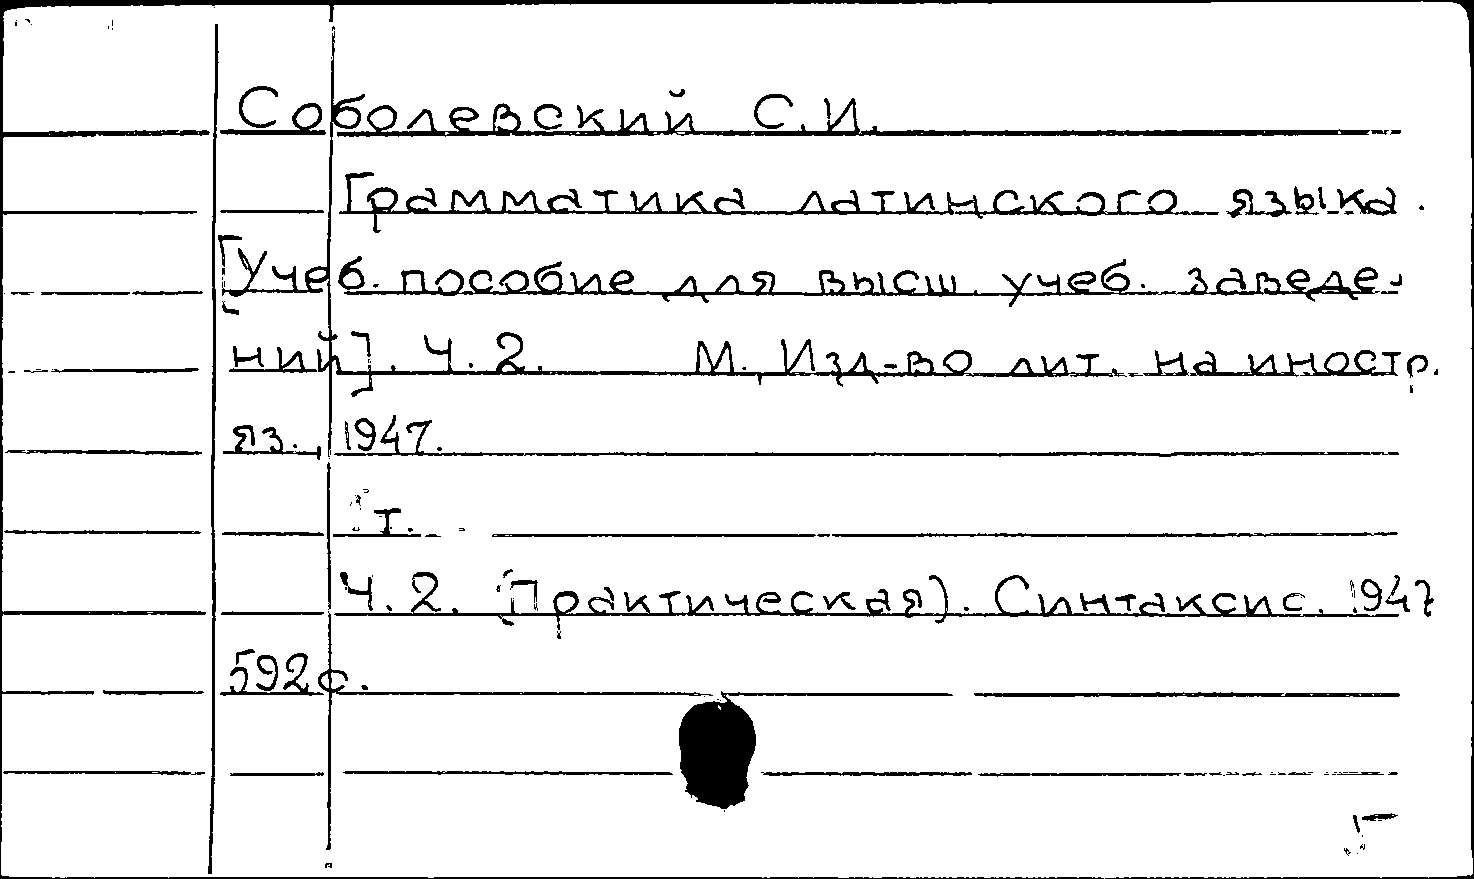 Соболевский С.И.
Грамматика латинского языка.
[Учеб. пособие для высш. учеб. заведе-
ний]. Ч.2. М., Изд-во лит. на иностр.
яз., 1947.
т.
Ч.2. (Практическая). Синтаксис. 1947
592с.